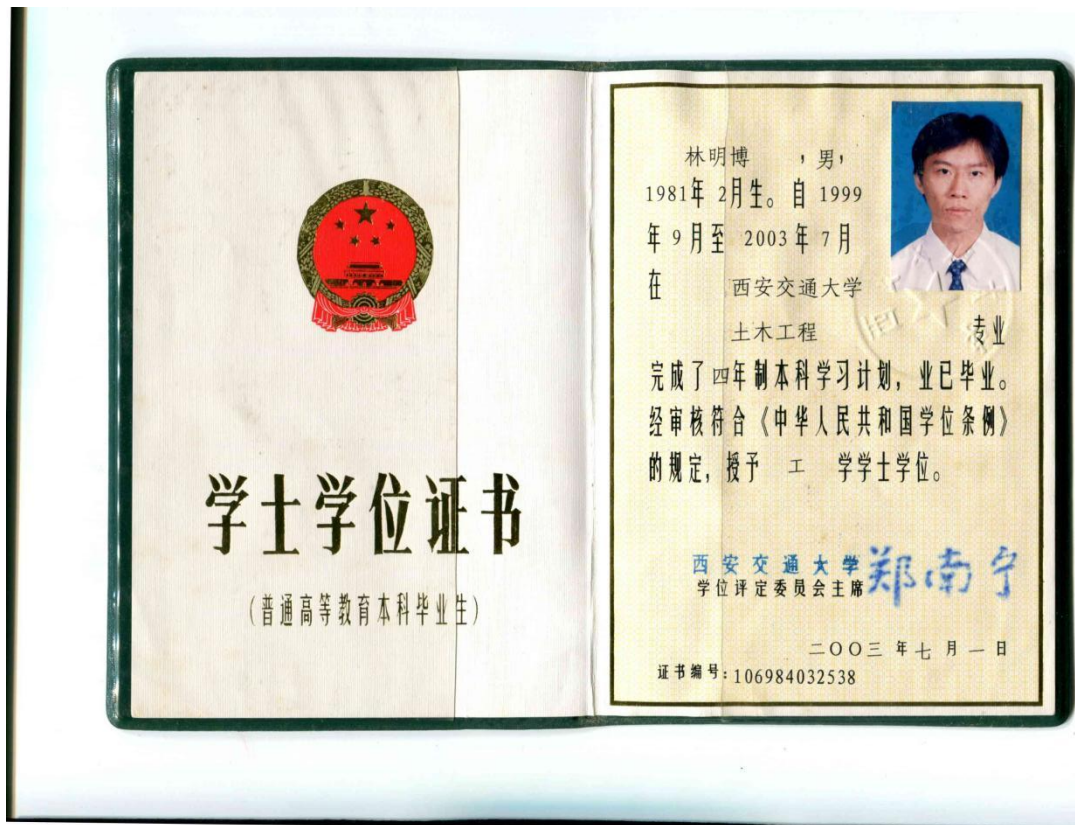 学士学位证书
(普通高等教育本科毕业生)
林明博 ,男,
1981年 2月生。自 1999
年 9 月至 2003 年 7 月
在 西安交通大学
土木工程 专业
完成了四年制本科学习计划，业已毕业。
经审核符合《中华人民共和国学位条例》
的规定，授予 工 学学士学位。
西安交通大学
学位评定委员会主席 郑南宁
二〇〇三 年 七 月 一 日
证书编号：106984032538